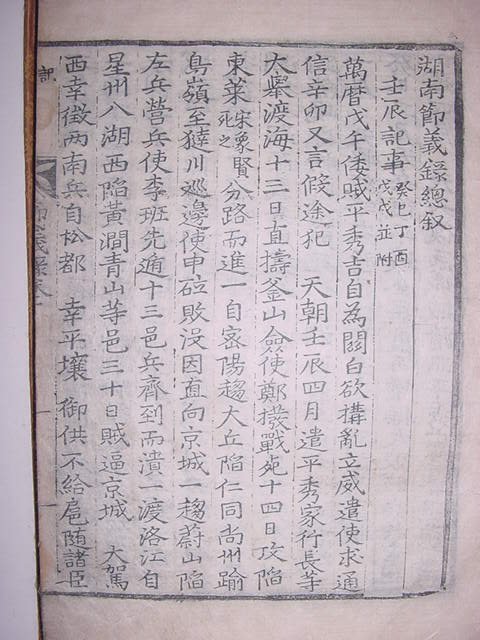 湖南節義錄總叙
壬辰記事 癸巳丁酉戊戌並附
萬曆戊午倭賊平秀吉自為關白欲搆亂立威遣使求通
信辛卯又言假途犯 天朝壬辰四月遣平秀家行長等
大擧渡海十三日直擣釜山僉使鄭撥戰死十四日攻陷
東萊宋象賢死之分路而進一自密陽趨大丘陷仁同尚州踰
鳥嶺至㺚川巡邊使申砬敗沒因直向京城一趨蔚山陷
左兵營兵使李珏先遁十三邑兵齊到而潰一渡洛江自
星州入湖西陷黃澗青山等邑三十日賊逼京城 大駕
西幸徵两南兵自松都 幸平壤 御供不給扈随諸臣